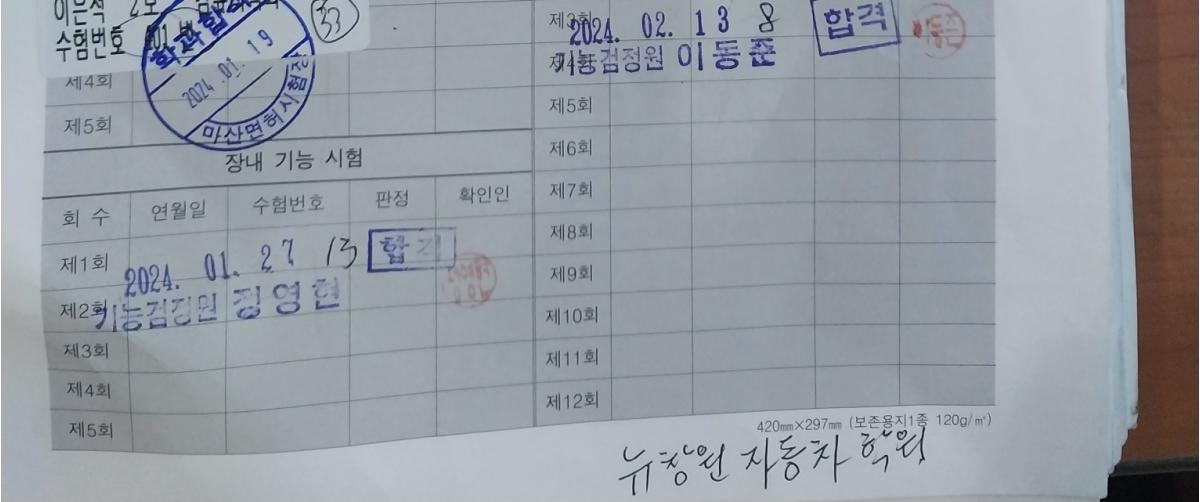 이은석 2호
수험번호
33
학과합격
2024 .01 .19
마산면허시험장
제4회
제5회
장내 기능 시험
회 수 연월일 수험번호 판정 확인인
제1회 2024. 01. 27 13 합격
제2회 기능검정원 정영현
제3회
제4회
제5회
제3회 2024. 02. 13 8 합격
제4회 기능검정원 이동준
제5회
제6회
제7회
제8회
제9회
제10회
제11회
제12회
420㎜×297㎜ (보존용지1종 120g/㎡)
뉴창원 자동차 학원